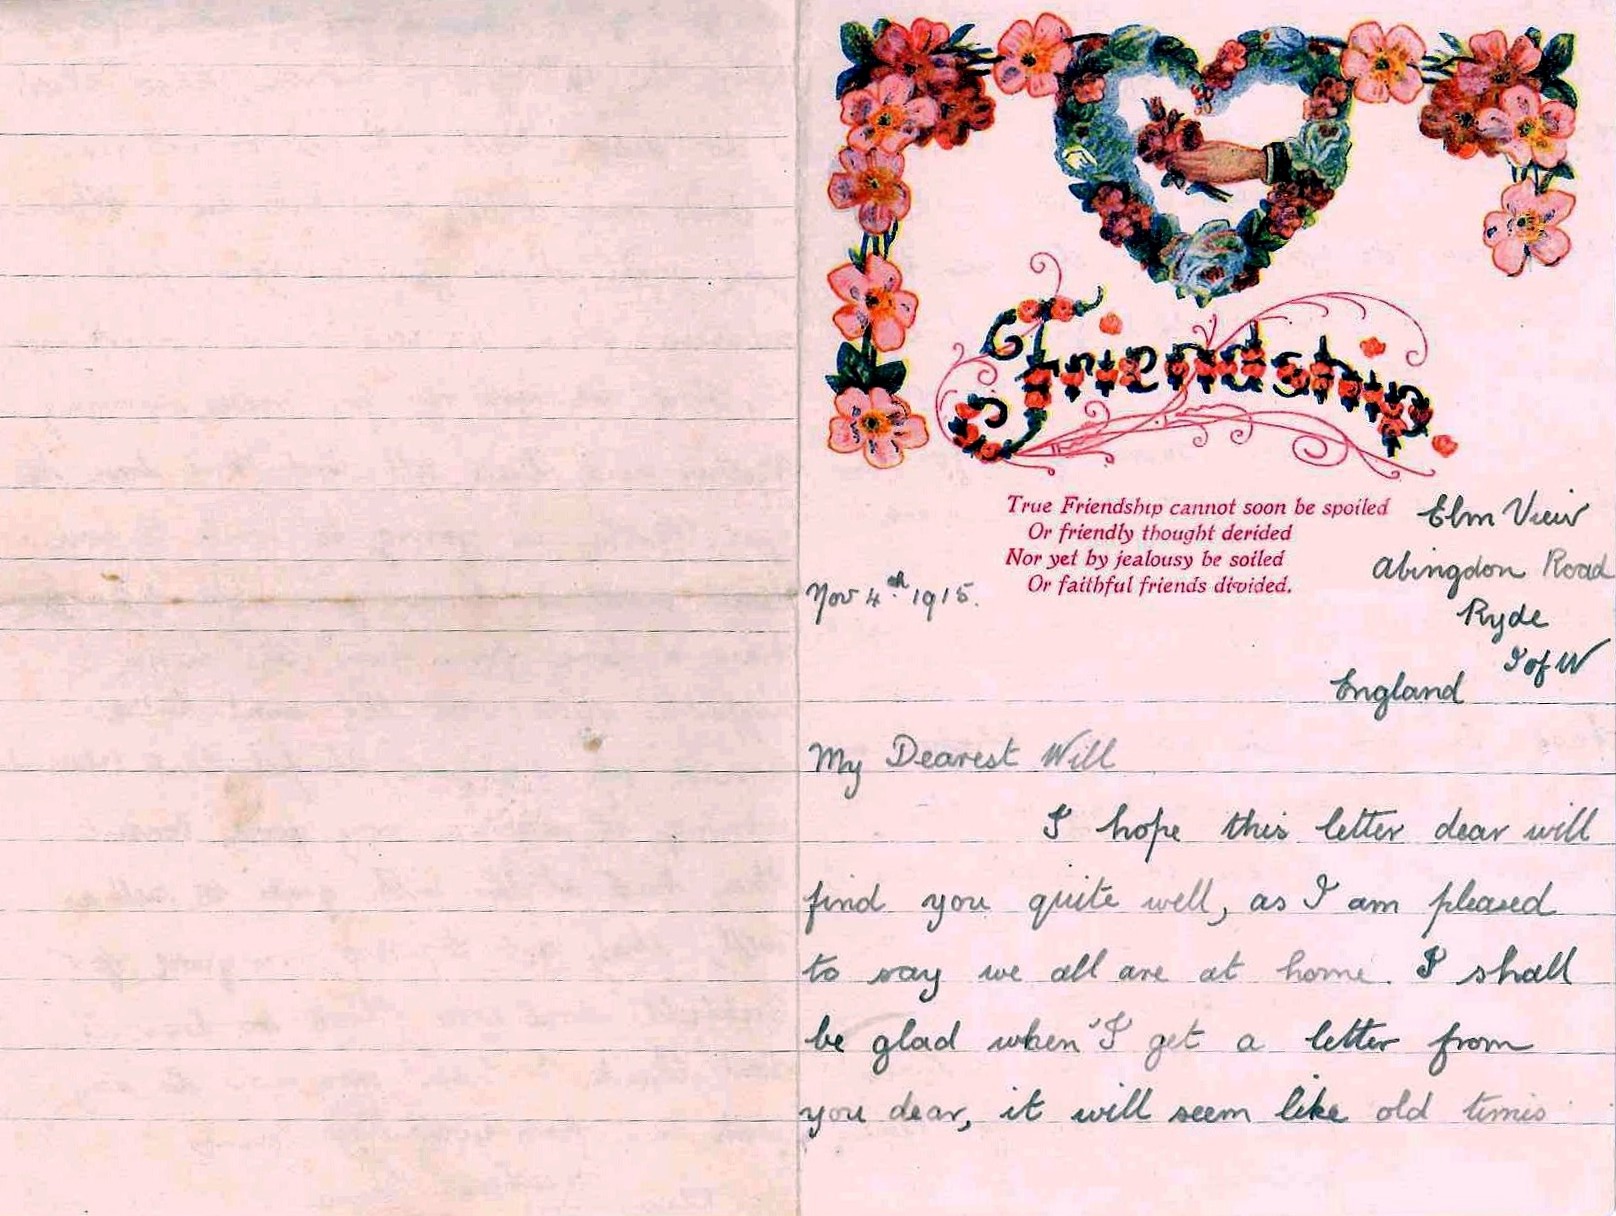 Friendship
True Friendship cannot soon be spoiled
Or friendly thought derided
Nor yet by jealousy be soiled
Or faithful friends divided.
Elm View
Abingdon Road
Ryde
I of W
England
Nov 4th 1915.
My Dearest Will
I hope this letter dear will
find you quite well, as I am pleased
to say we all are at home. I shall
be glad when I get a letter from
you dear, it will seem like old times